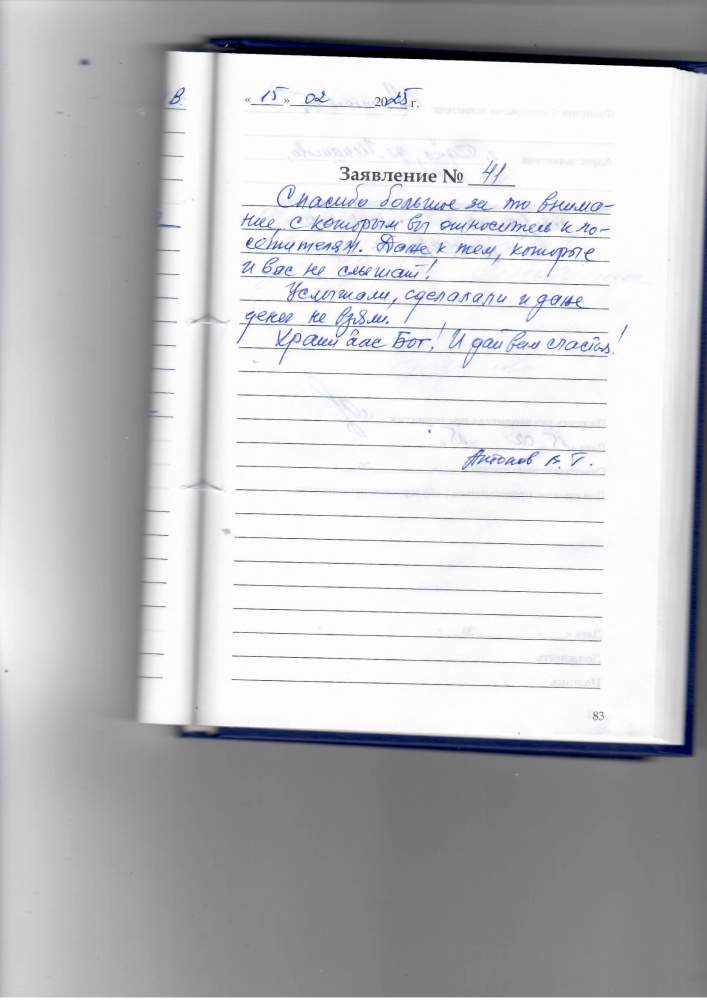 В.
«15» 02 2025 г.
Заявление № 41
Спасибо большое за то внима-
ние, с которым вы относитесь к по-
сетителям. Даже к тем, которые
и вас не слышат!
Услышали, сделали и даже
денег не взяли.
Храни вас Бог! И дай вам счастья!
Антонов В. Г.
83